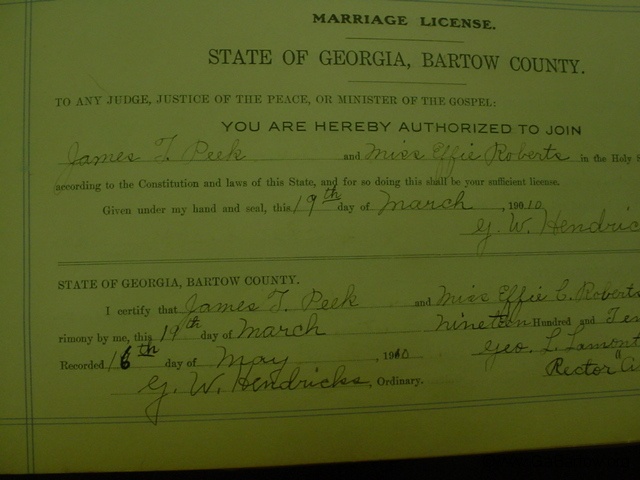 MARRIAGE LICENSE.
STATE OF GEORGIA, BARTOW COUNTY.
TO ANY JUDGE, JUSTICE OF THE PEACE, OR MINISTER OF THE GOSPEL:
YOU ARE HEREBY AUTHORIZED TO JOIN
James T. Peek and Miss Effie Roberts in the Holy
according to the Constitution and laws of this State, and for so doing this shall be your sufficient license.
Given under my hand and seal, this 19th day of March, 1910
G. W. Hendric
STATE OF GEORGIA, BARTOW COUNTY.
I certify that James T. Peek and Miss Effie C. Roberts
rimony by me, this 19th day of March nineteen Hundred and Ten
Recorded 16th day of May, 1910 Geo. L. Lamont
G. W. Hendricks, Ordinary. Rector